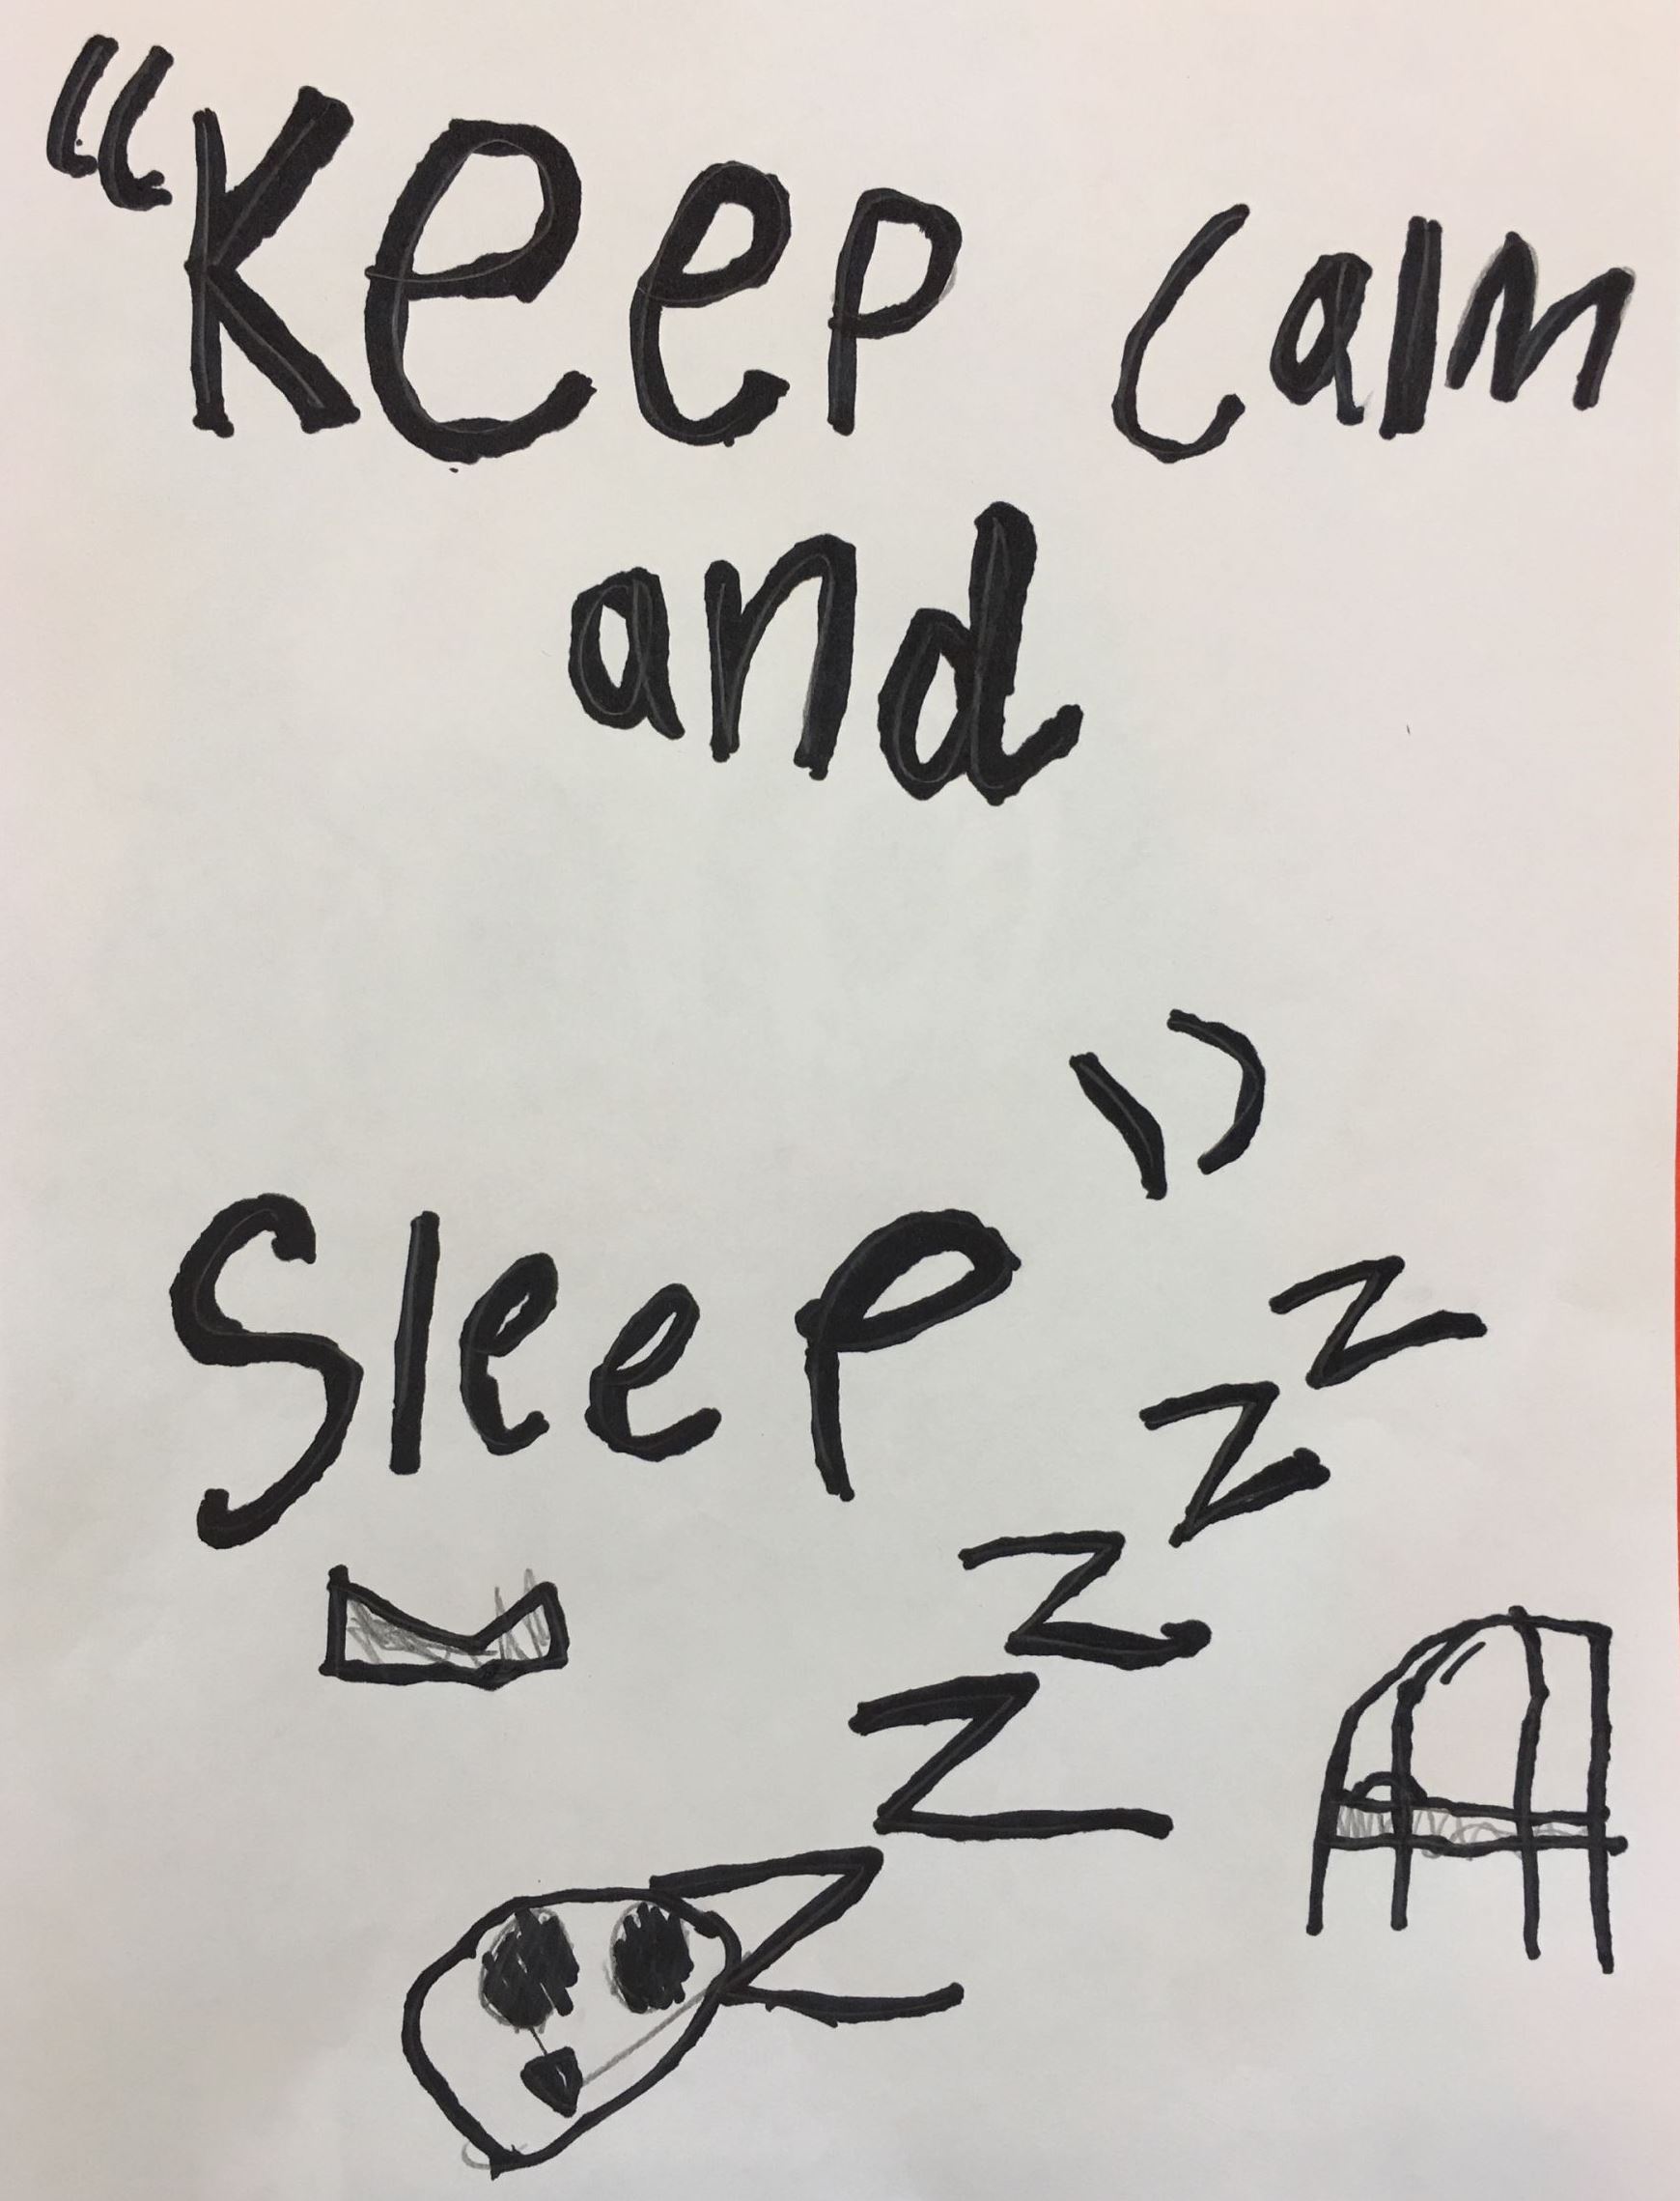 "Keep calm
and
Sleep"
z
z
z
z
z